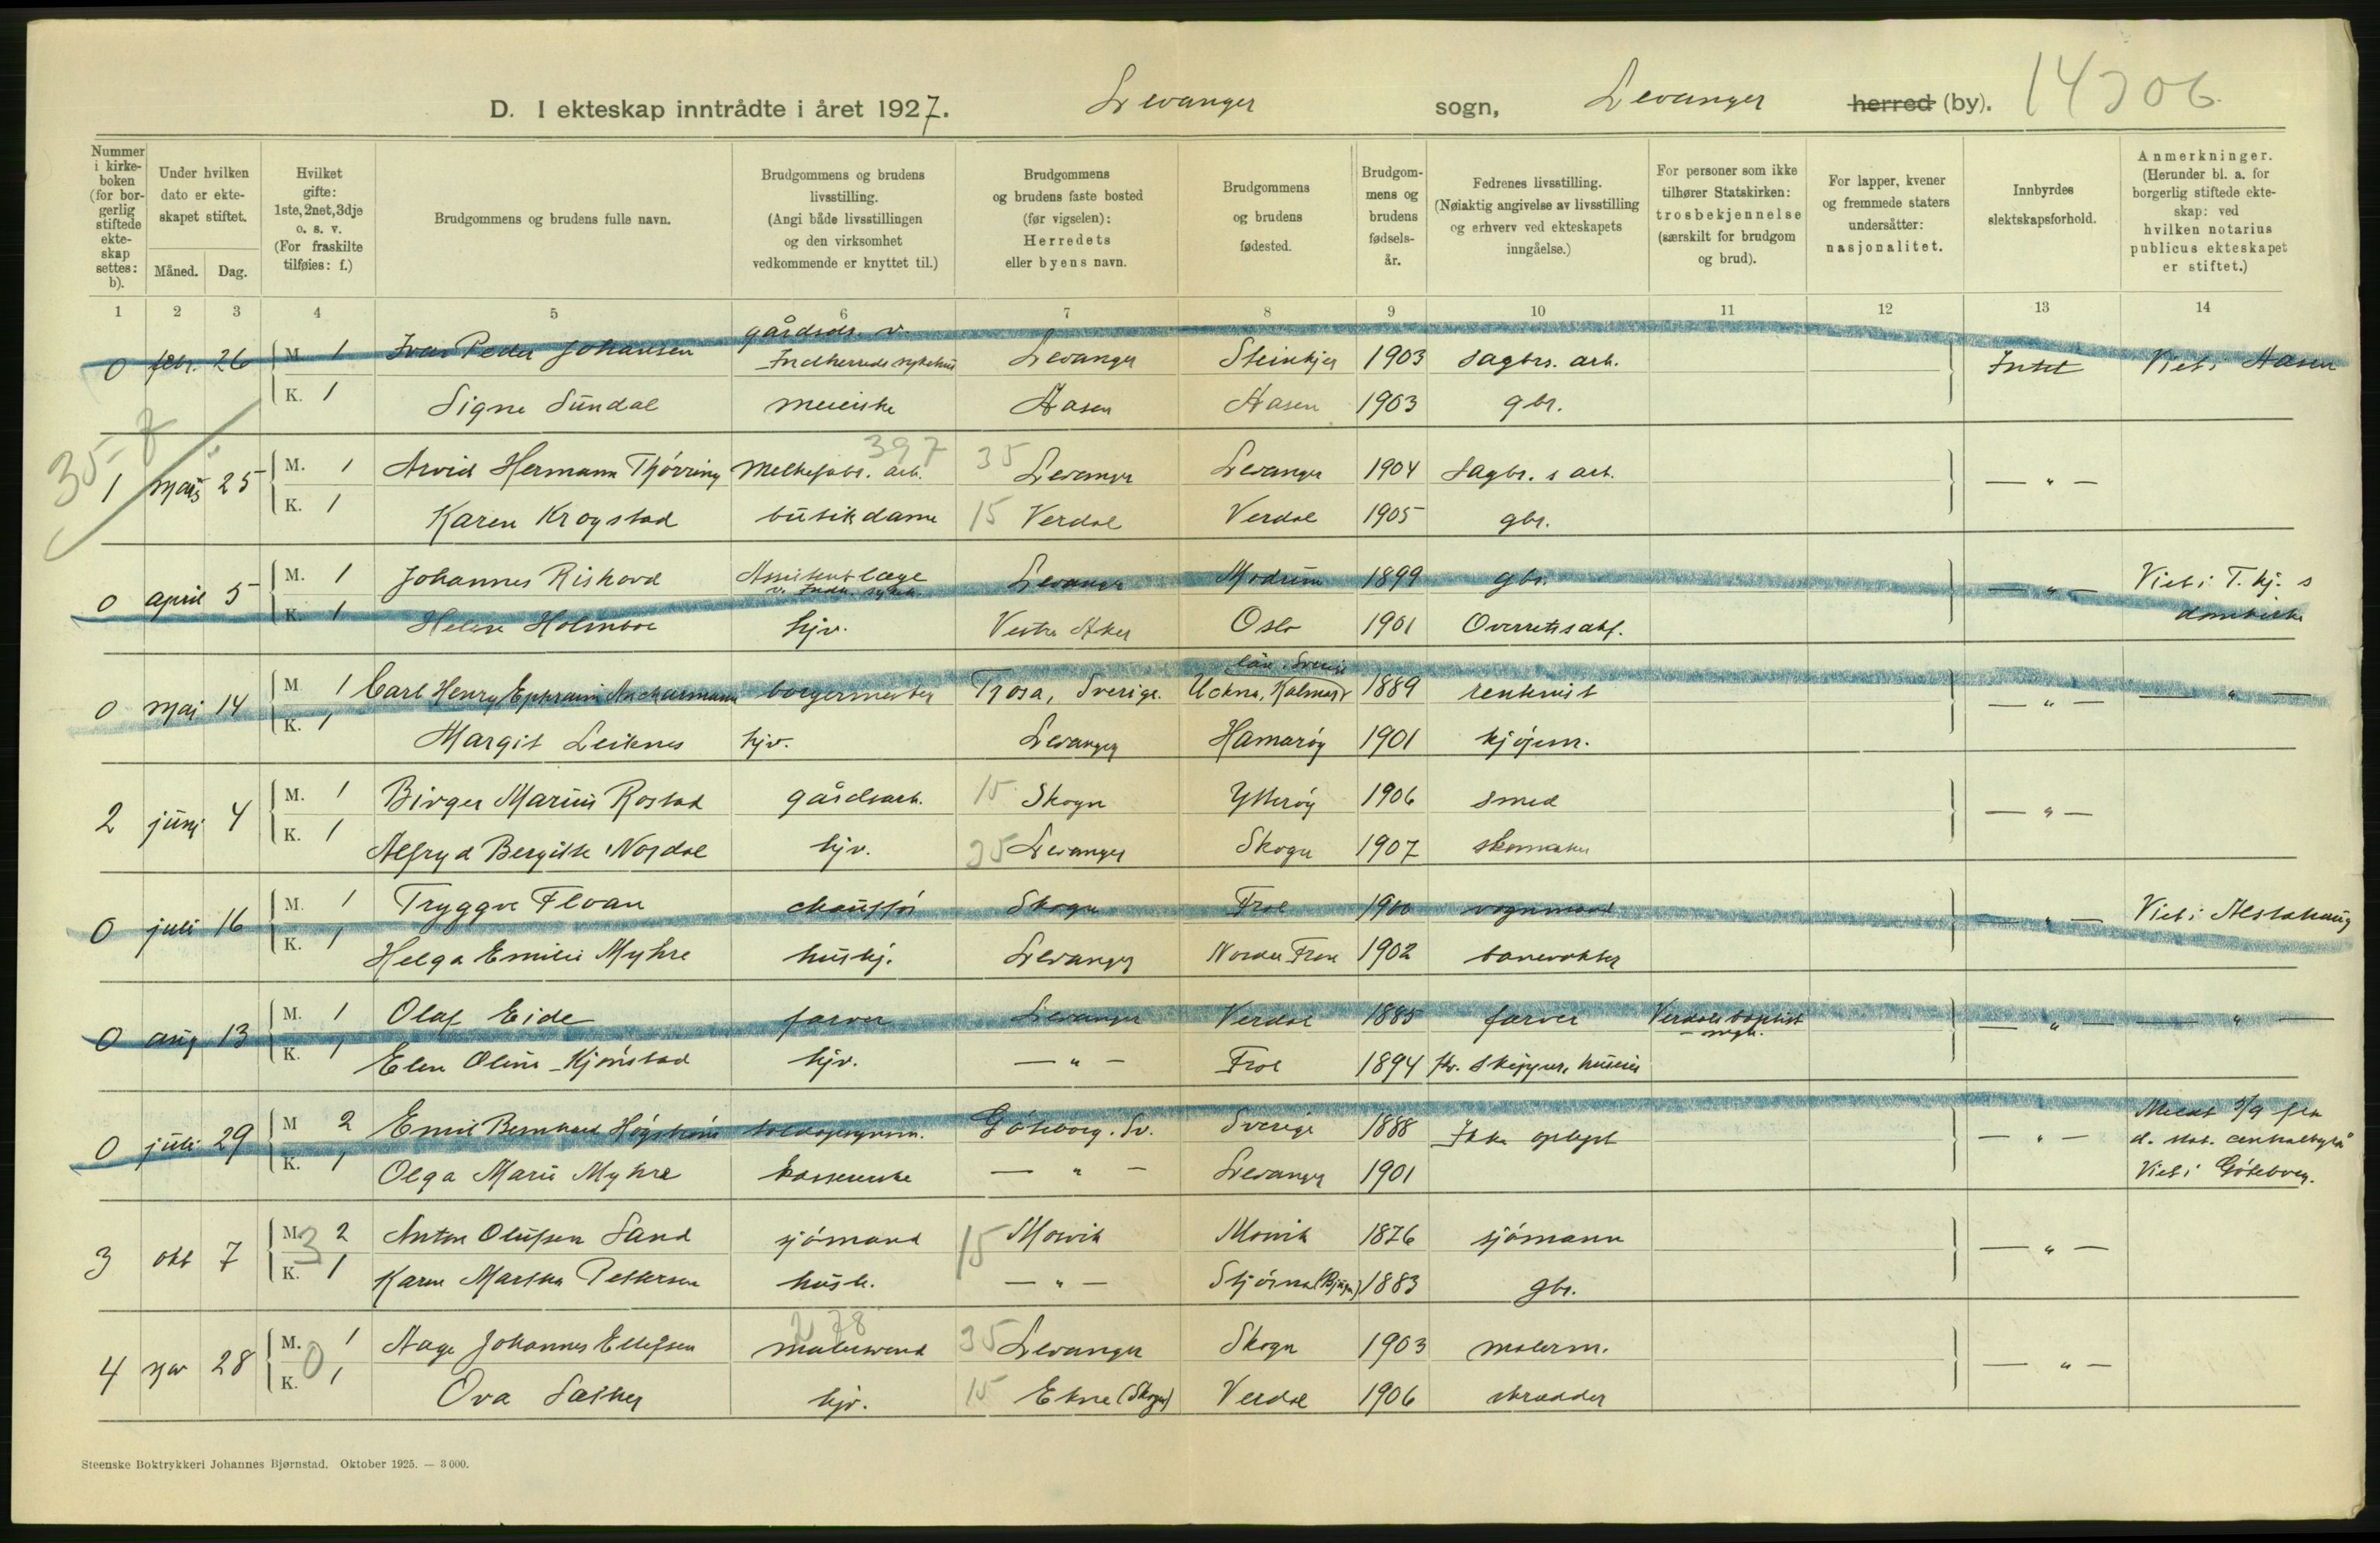 D. I ekteskap inntrådte i året 1927. Levanger sogn, Levanger herred (by). 14306
Nummer i kirkeboken (for borgerlig stiftede ekteskap settes: b).
Under hvilken dato er ekteskapet stiftet.
Måned. Dag.
Hvilket gifte: 1ste, 2net, 3dje o. s. v. (For fraskilte tilføies: f.)
Brudgommens og brudens fulle navn.
Brudgommens og brudens livsstilling. (Angi både livsstillingen og den virksomhet vedkommende er knyttet til.)
Brudgommens og brudens faste bosted (før vigselen): Herredets eller byens navn.
Brudgommens og brudens fødested.
Brudgommens og brudens fødselsår.
Fedrenes livsstilling. (Nøiaktig angivelse av livsstilling og erhverv ved ekteskapets inngåelse.)
For personer som ikke tilhører Statskirken: trosbekjennelse (særskilt for brudgom og brud).
For lapper, kvener og fremmede staters undersåtter: nasjonalitet.
Innbyrdes slektskapsforhold.
Anmerkninger. (Herunder bl. a. for borgerlig stiftede ekteskap: ved hvilken notarius publicus ekteskapet er stiftet.)
1 2 3 4 5 6 7 8 9 10 11 12 13 14
gårdsdr. v.
0 febr. 26 M. 1 Ivar Peder Johansen Indherreds sykehus Levanger Steinkjer 1903 sagbrs. arb. Intet Viet i Aasen
K. 1 Signe Sundal meierske Aasen Aasen 1903 gbr.
357 397 35
1 mars 25 M. 1 Arvid Hermann Thørring Melkefabr. arb. Levanger Levanger 1904 Sagbr. s arb. — " —
K. 1 Karen Krogstad butikdame 15 Verdal Verdal 1905 gbr.
0 april 5 M. 1 Johannes Riskovd Assistentlæge Levanger Modum 1899 gbr. — " — Viet i T. hj. s
v. Indh. sykeh.
K. 1 Helene Holmboe hjv. Vestre Aker Oslo 1901 Overretssakf. domkirke
län. Sverige
0 mai 14 M 1 Carl Henry Ephraim Anckarmann borgermester Trosa, Sverige. Uckna, Kalmar 1889 rentenist — " — — " —
K. 1 Margit Leiknes hjv. Levanger Hamarøy 1901 kjøpm.
2 juni 4 M. 1 Birger Marius Rostad gårdsarb. 15 Skogn Ytterøy 1906 smed — " —
K. 1 Alfryd Bergitte Nordal hjv. 35 Levanger Skogn 1907 skomaker
0 juli 16 M. 1 Tryggve Floan chauffør Skogn Frol 1900 vognmand — " — Viet i Alstahaug
K. 1 Helga Emilie Myhre hushj. Levanger Nordre Frol 1902 banevokter
0 aug 13 M. 1 Olaf Eide farver Levanger Verdal 1885 farver Verdals baptist — " — — " —
mgh.
K. 1 Elen Oline Kjønstad hjv. — " — Frol 1894 fv. skipper, huseier
0 juli 29 M 2 Emil Bernhard Högström Göteborg. Sv. Sverige 1888 Ikke oplyst — " — Meldt 3/9 fra
d. stat. centralbyrå
K. 1 Olga Marie Myhre kassererske — " — Levanger 1901 Viet i Göteborg.
3 okt 7 M. 3 2 Anton Olufsen Sand sjømand 15 Mosvik Mosvik 1876 sjømann — " —
K. 1 Karen Martha Pettersen hush. — " — Stjørna (Bjugn) 1883 gbr.
278
4 nov 28 M. 0 1 Aage Johannes Ellefsen malersvend 35 Levanger Skogn 1903 malerm. — " —
K. 1 Ova Sather hjv. 15 Ekne (Skogn) Verdal 1906 skrædder
Steenske Boktrykkeri Johannes Bjørnstad. Oktober 1925. — 3 000.